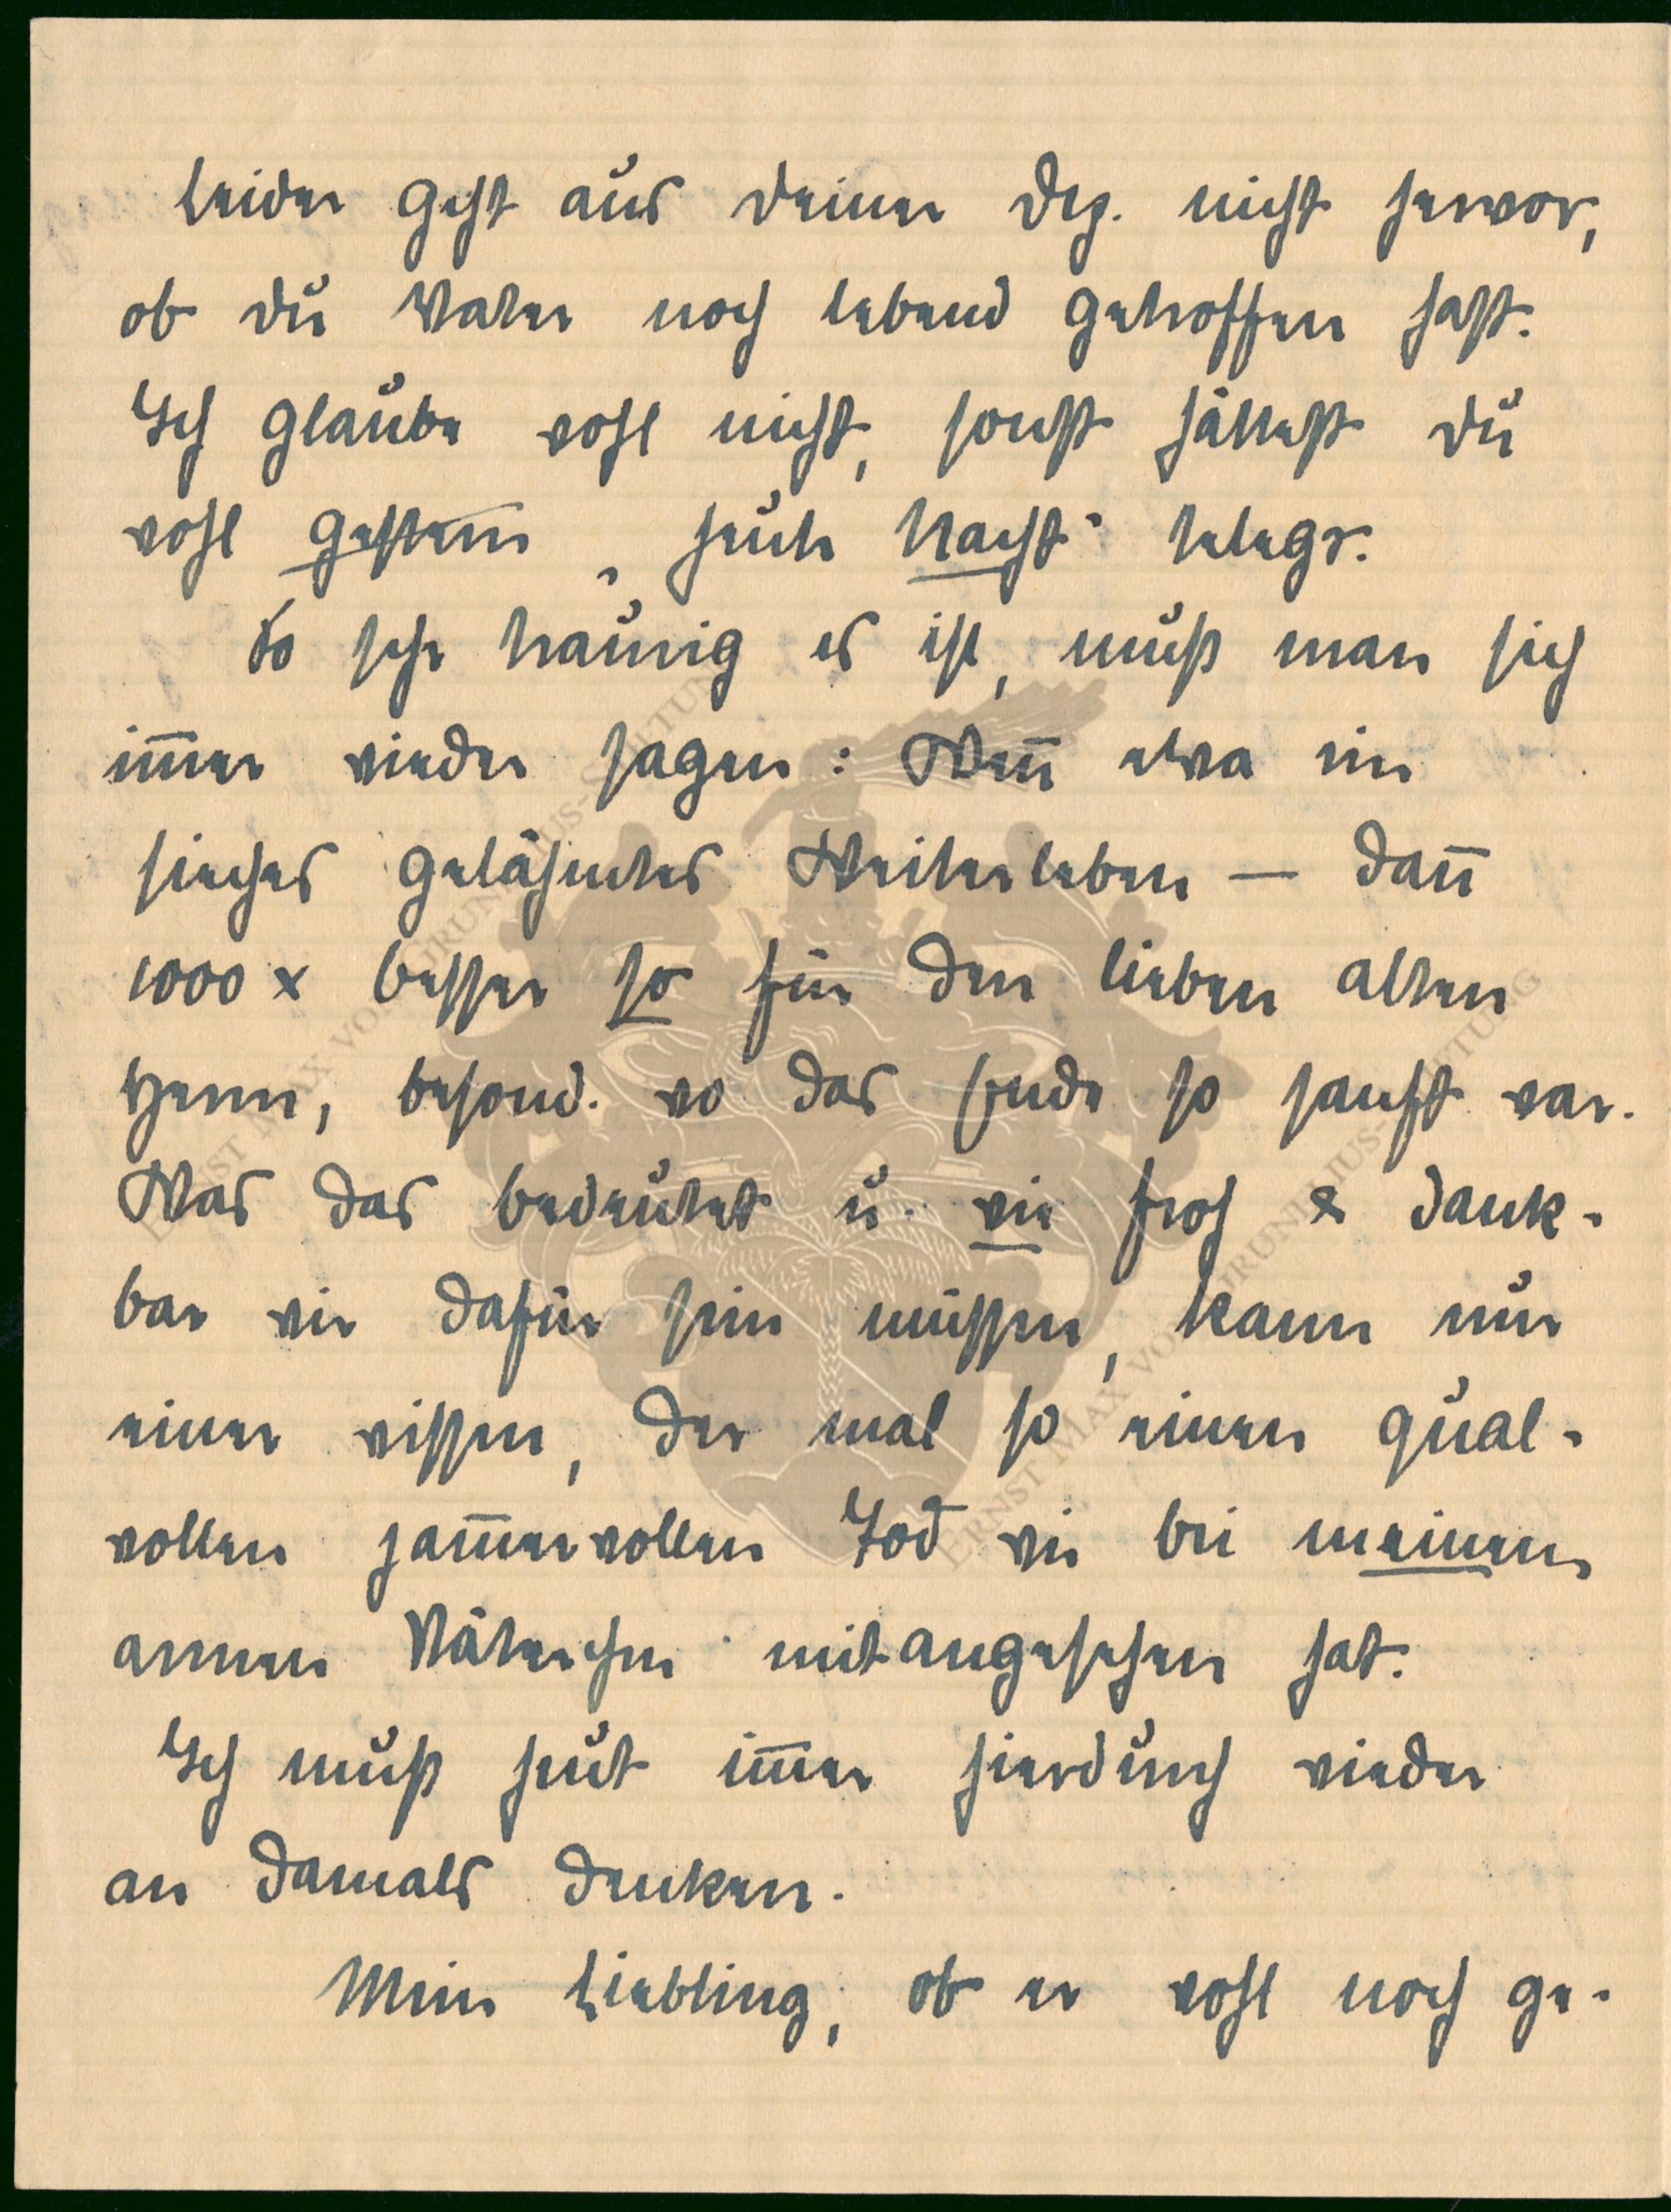 Leider geht aus Deiner Dep. nicht hervor,
ob Du Vater noch lebend getroffen hast.
Ich glaube wohl nicht, sonst hättest Du
wohl gestern „heute Nacht“ telegr.
So sehr traurig es ist, muß man sich
im̅er wieder sagen: Wen̅ etwa ein
sieches gelähmtes Weiterleben — dan̅
1000 x besser so für den lieben alten
Herrn, besond. wo das Ende so sanft war.
Was das bedeutet u. wie froh & dank-
bar wir dafür sein müssen, kann nur
einer wissen, der mal so einen qual-
vollen jam̅ervollen Tod wie bei meinem
armen Väterchen mitangesehen hat.
Ich muß heut im̅er hierdurch wieder
an damals denken.
Mein Liebling, ob er wohl noch ge-
ERNST MAX VON GRUNELIUS-STIFTUNG
ERNST MAX VON GRUNELIUS-STIFTUNG